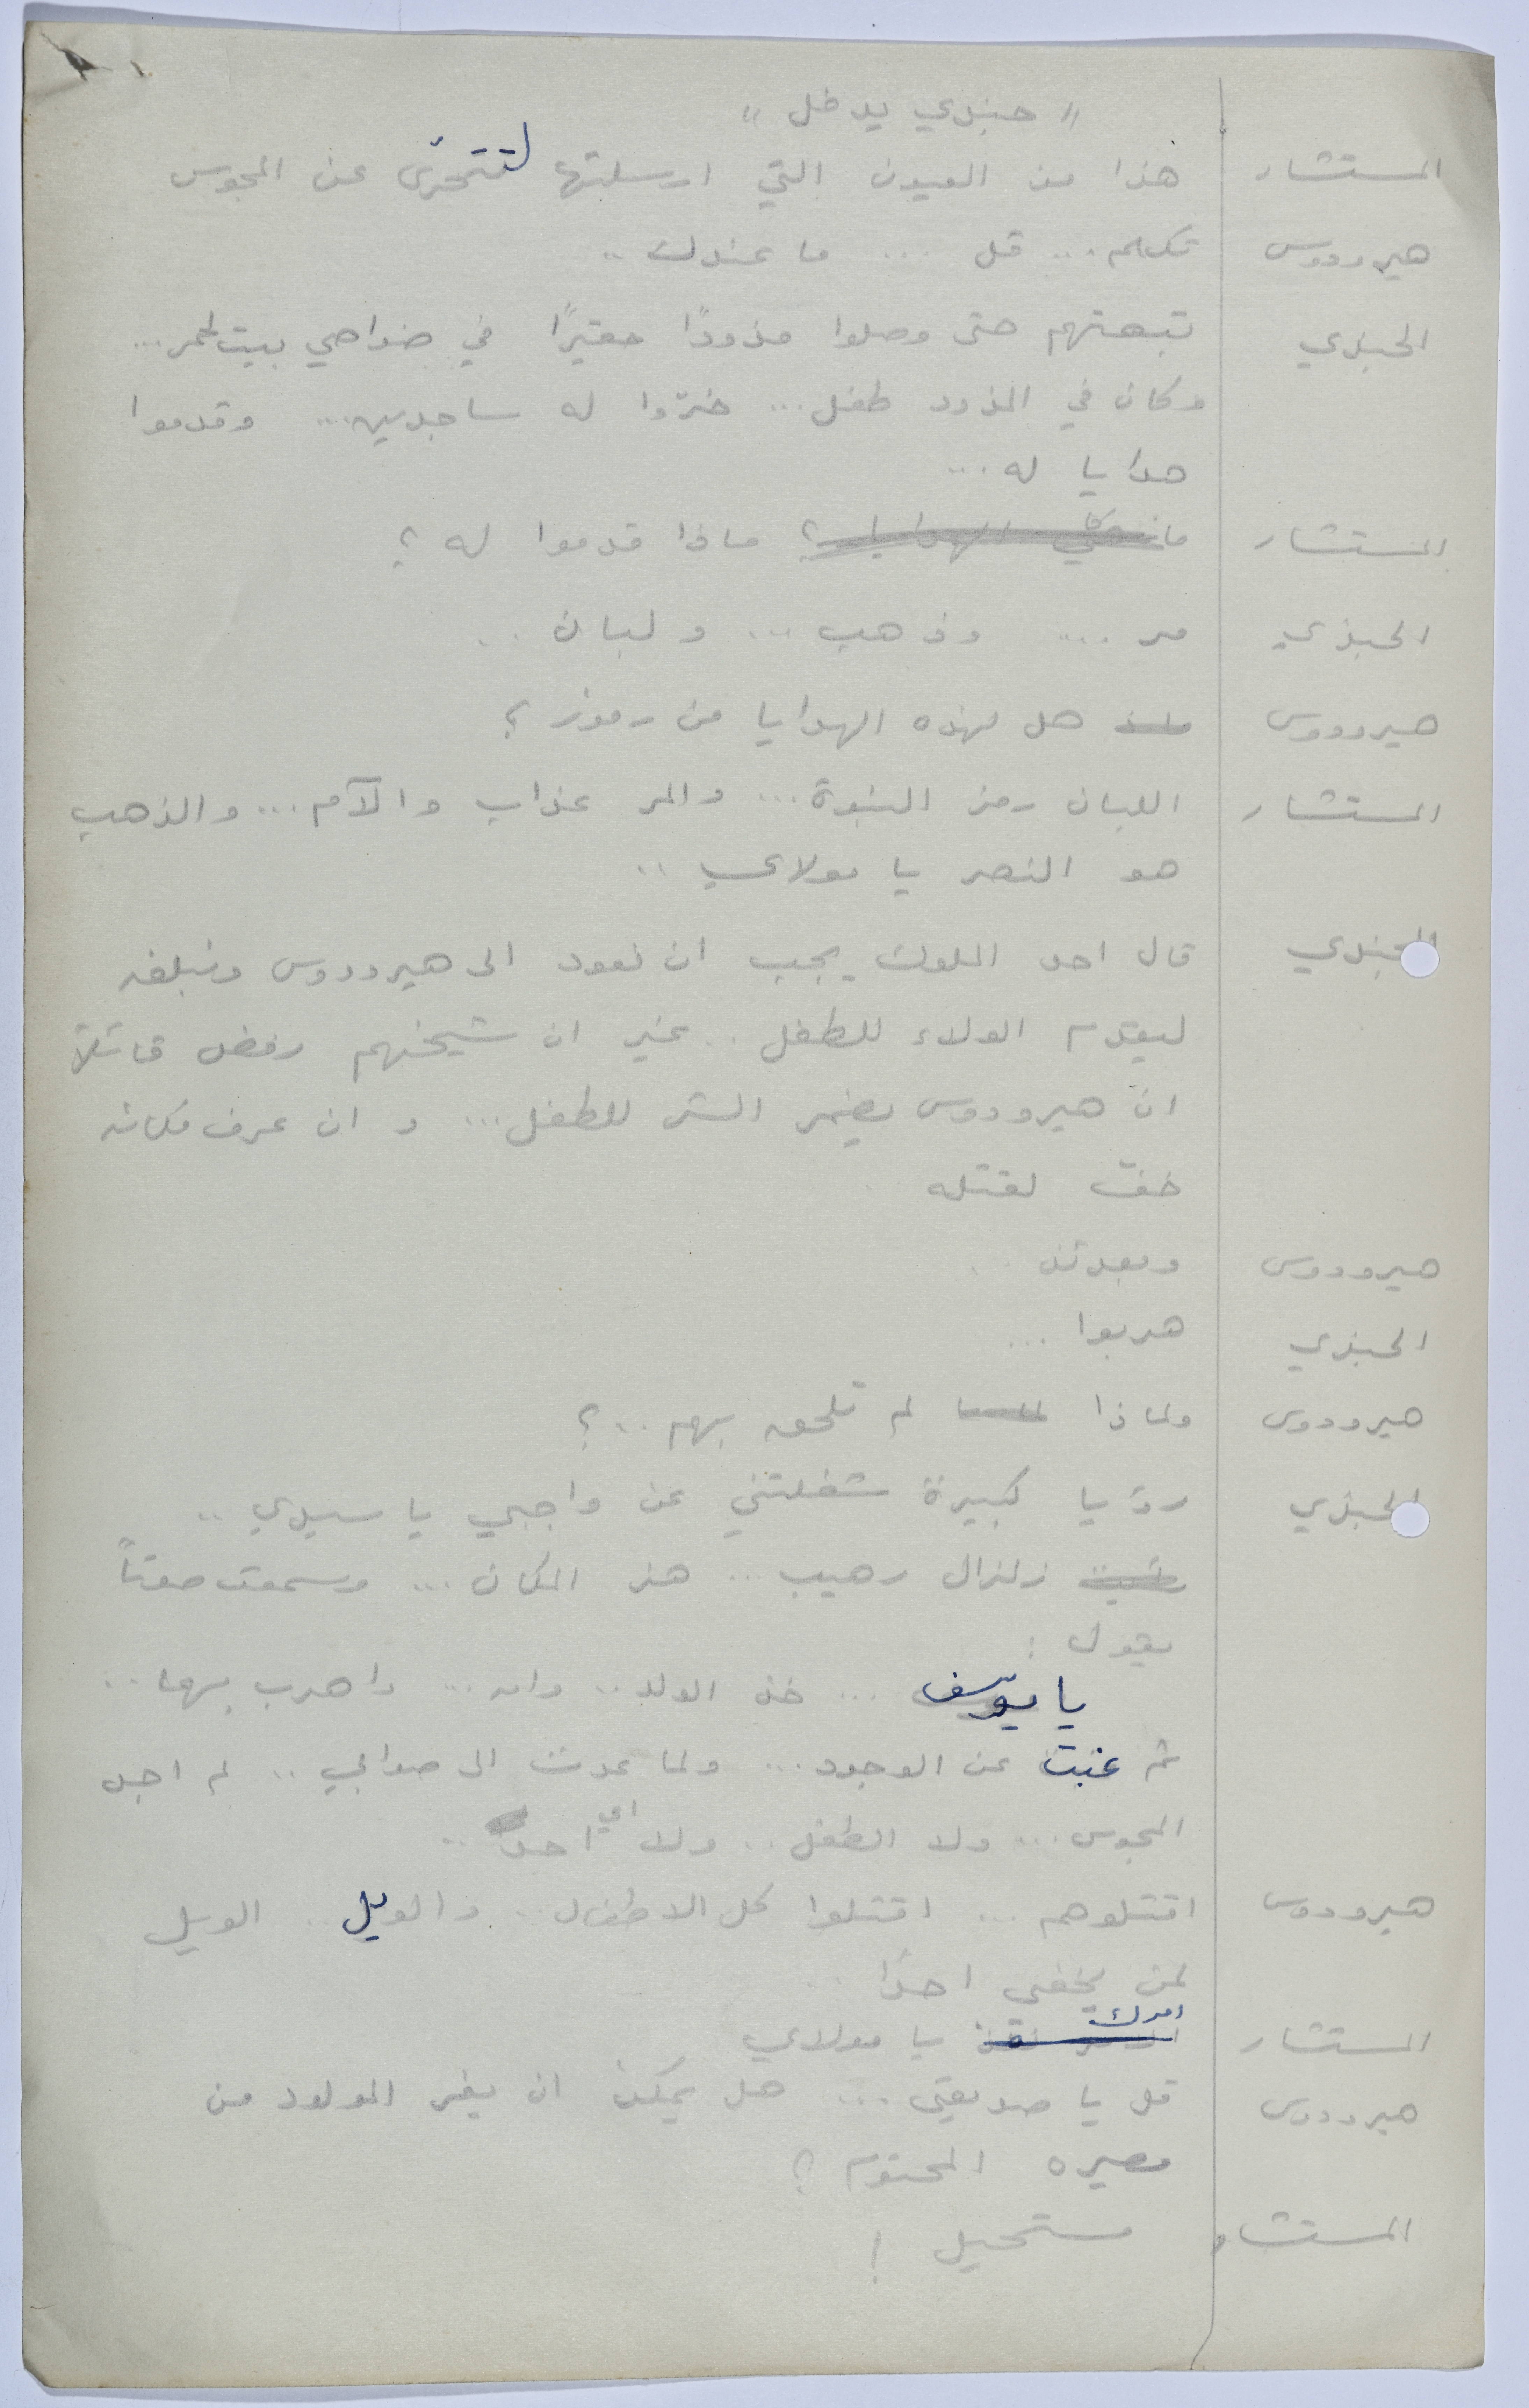 " جندي يدخل "
المستشار هذا من العيون التي ارسلتها لتتحرّى عن المجوس
هيرودوس تكلم... قل ... ما عندك ..
الجندي تبعتهم حتى وصلوا مذودًا حقيرًا في ضواحي بيت لحم...
وكان في المذود طفل... خرّوا له ساجدين... وقدموا
هدايا له ...
المستشار ما هي الهدايا؟ ماذا قدموا له ؟
الجندي مر .... وذهب ... ولبان ..
هيرودوس ماذا هل لهذه الهدايا من رموز ؟
المستشار اللبان رمز النبوة... والمر عذاب والآم... والذهب
هو النصر يا مولاي ..
الجندي قال احد الملوك يجب ان نعود الى هيرودوس ونبلغه
ليقدم الولاء للطفل .. غير ان شيخهم رفض قائلاً
انّ هيرودوس يضمر الشر للطفل... وان عرف مكانه
خفّ لقتله
هيرودوس وبعدئذ ..
الجندي هربوا ...
هيرودوس ولماذا لم تلحق بهم ..؟
الجندي رؤيا كبيرة شغلتني عن واجبي يا سيدي ..
زلزال رهيب ... هز المكان ... وسمعت صوتاً
يقول :
يا يوسف ... خذ الولد .. وامه ... واهرب بهما ..
ثم غبت عن الوجود ... ولما عدت الى صوابي .. لم اجد
المجوس ... ولا الطفل .. ولا اي احد ..
هيرودوس اقتلوهم ... اقتلوا كل الاطفال .. والويل .. الويل
لمن يخفي احدًا ..
المستشار امرك يا مولاي
هيرودوس قل يا صديقي ... هل يمكن ان يفر المولود من
مصيره المحتوم ؟
المستشار مستحيل !